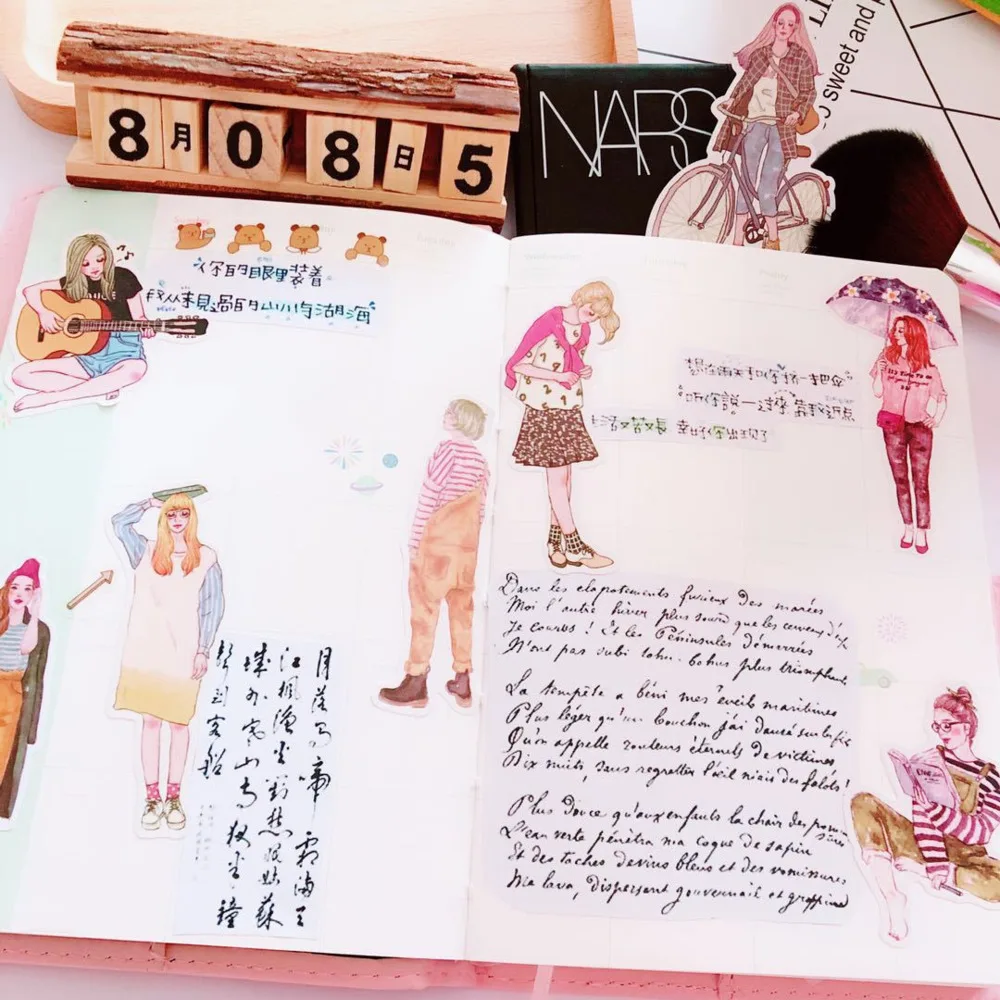 8月08日5
NARS
sweet and
你的眼里装着
我从未見過的山川与湖海
想在雨天和你撑一把伞
听你說一这样 靠我近点
生活又苦又長 幸好你出現了
月落烏啼霜滿天
江楓漁火對愁眠姑蘇
城外寒山寺夜半鐘
聲到客船
Dans les clapotements furieux des marées
Moi l'autre hiver plus sourd que les cerveaux d'enf
Je courus ! Et les Péninsules démarrées
N'ont pas subi tohu-bohus plus triomphant
La tempête a béni mes éveils maritimes
Plus léger qu'un bouchon j'ai dansé sur les flots
Qu'on appelle rouleurs éternels de victimes
Dix nuits, sans regretter l'œil niais des falots !
Plus douce qu'aux enfants la chair des pommes sûres
L'eau verte pénétra ma coque de sapin
Et des taches de vins bleus et des vomissures
Me lava, dispersant gouvernail et grappin